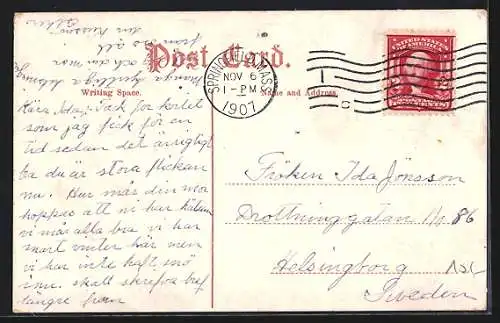 Post Card.
SPRINGFIELD, MASS.
NOV 6
1-PM
1907
UNITED STATES OF AMERICA
Writing Space.
Name and Address.
Kära Ida. Tack för kortet
som jag fick för en
tid sedan det är rigtigt
bra du är stora flickan
nu. Hur mår din ma
hoppas att ni har
vi mår alla bra vi har
snart vinter här men
vi har inte haft snö
innu. skall skrefva bref
längre fram
många hjertliga
och din mor
från
din kusin
Fröken Ida Jönsson
Drottninggatan No 86
Helsingborg
Sweden